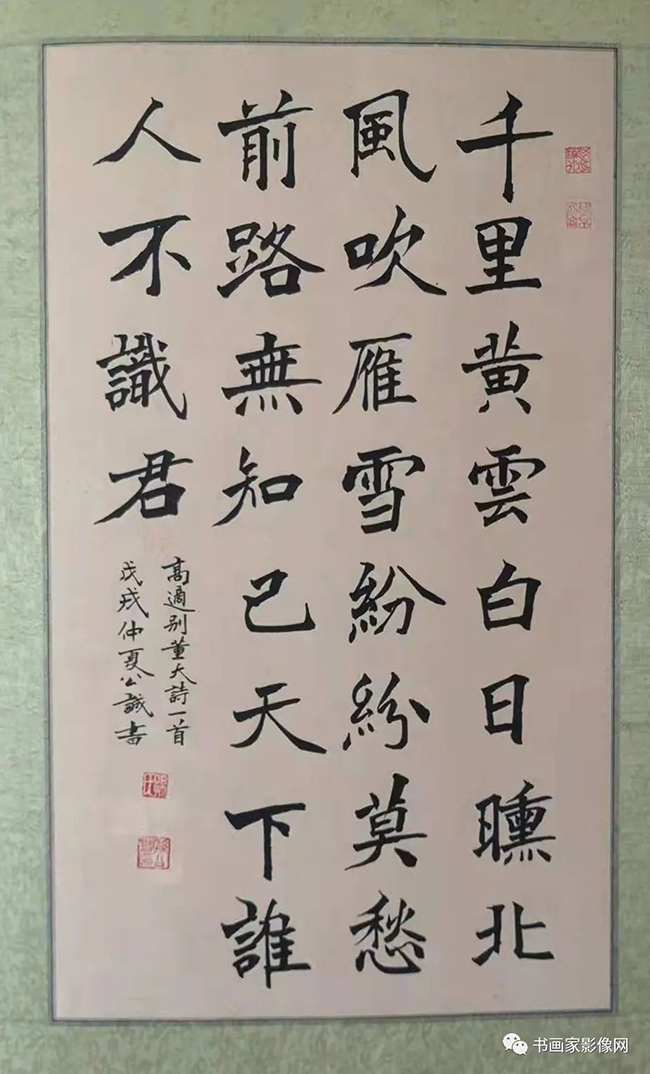 千里黄雲白日曛北
風吹雁雪紛紛莫愁
前路無知己天下誰
人不識君
高適别董大詩一首
戊戌仲夏公誠書
书画家影像网